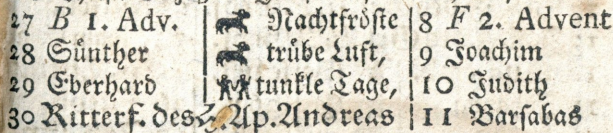 27 B 1. Adv. Nachtfröste 8 F 2. Advent
28 Günther trübe Luft, 9 Joachim
29 Eberhard tunkle Tage, 10 Judith
30 Ritterf. des H. Ap. Andreas 11 Barsabas